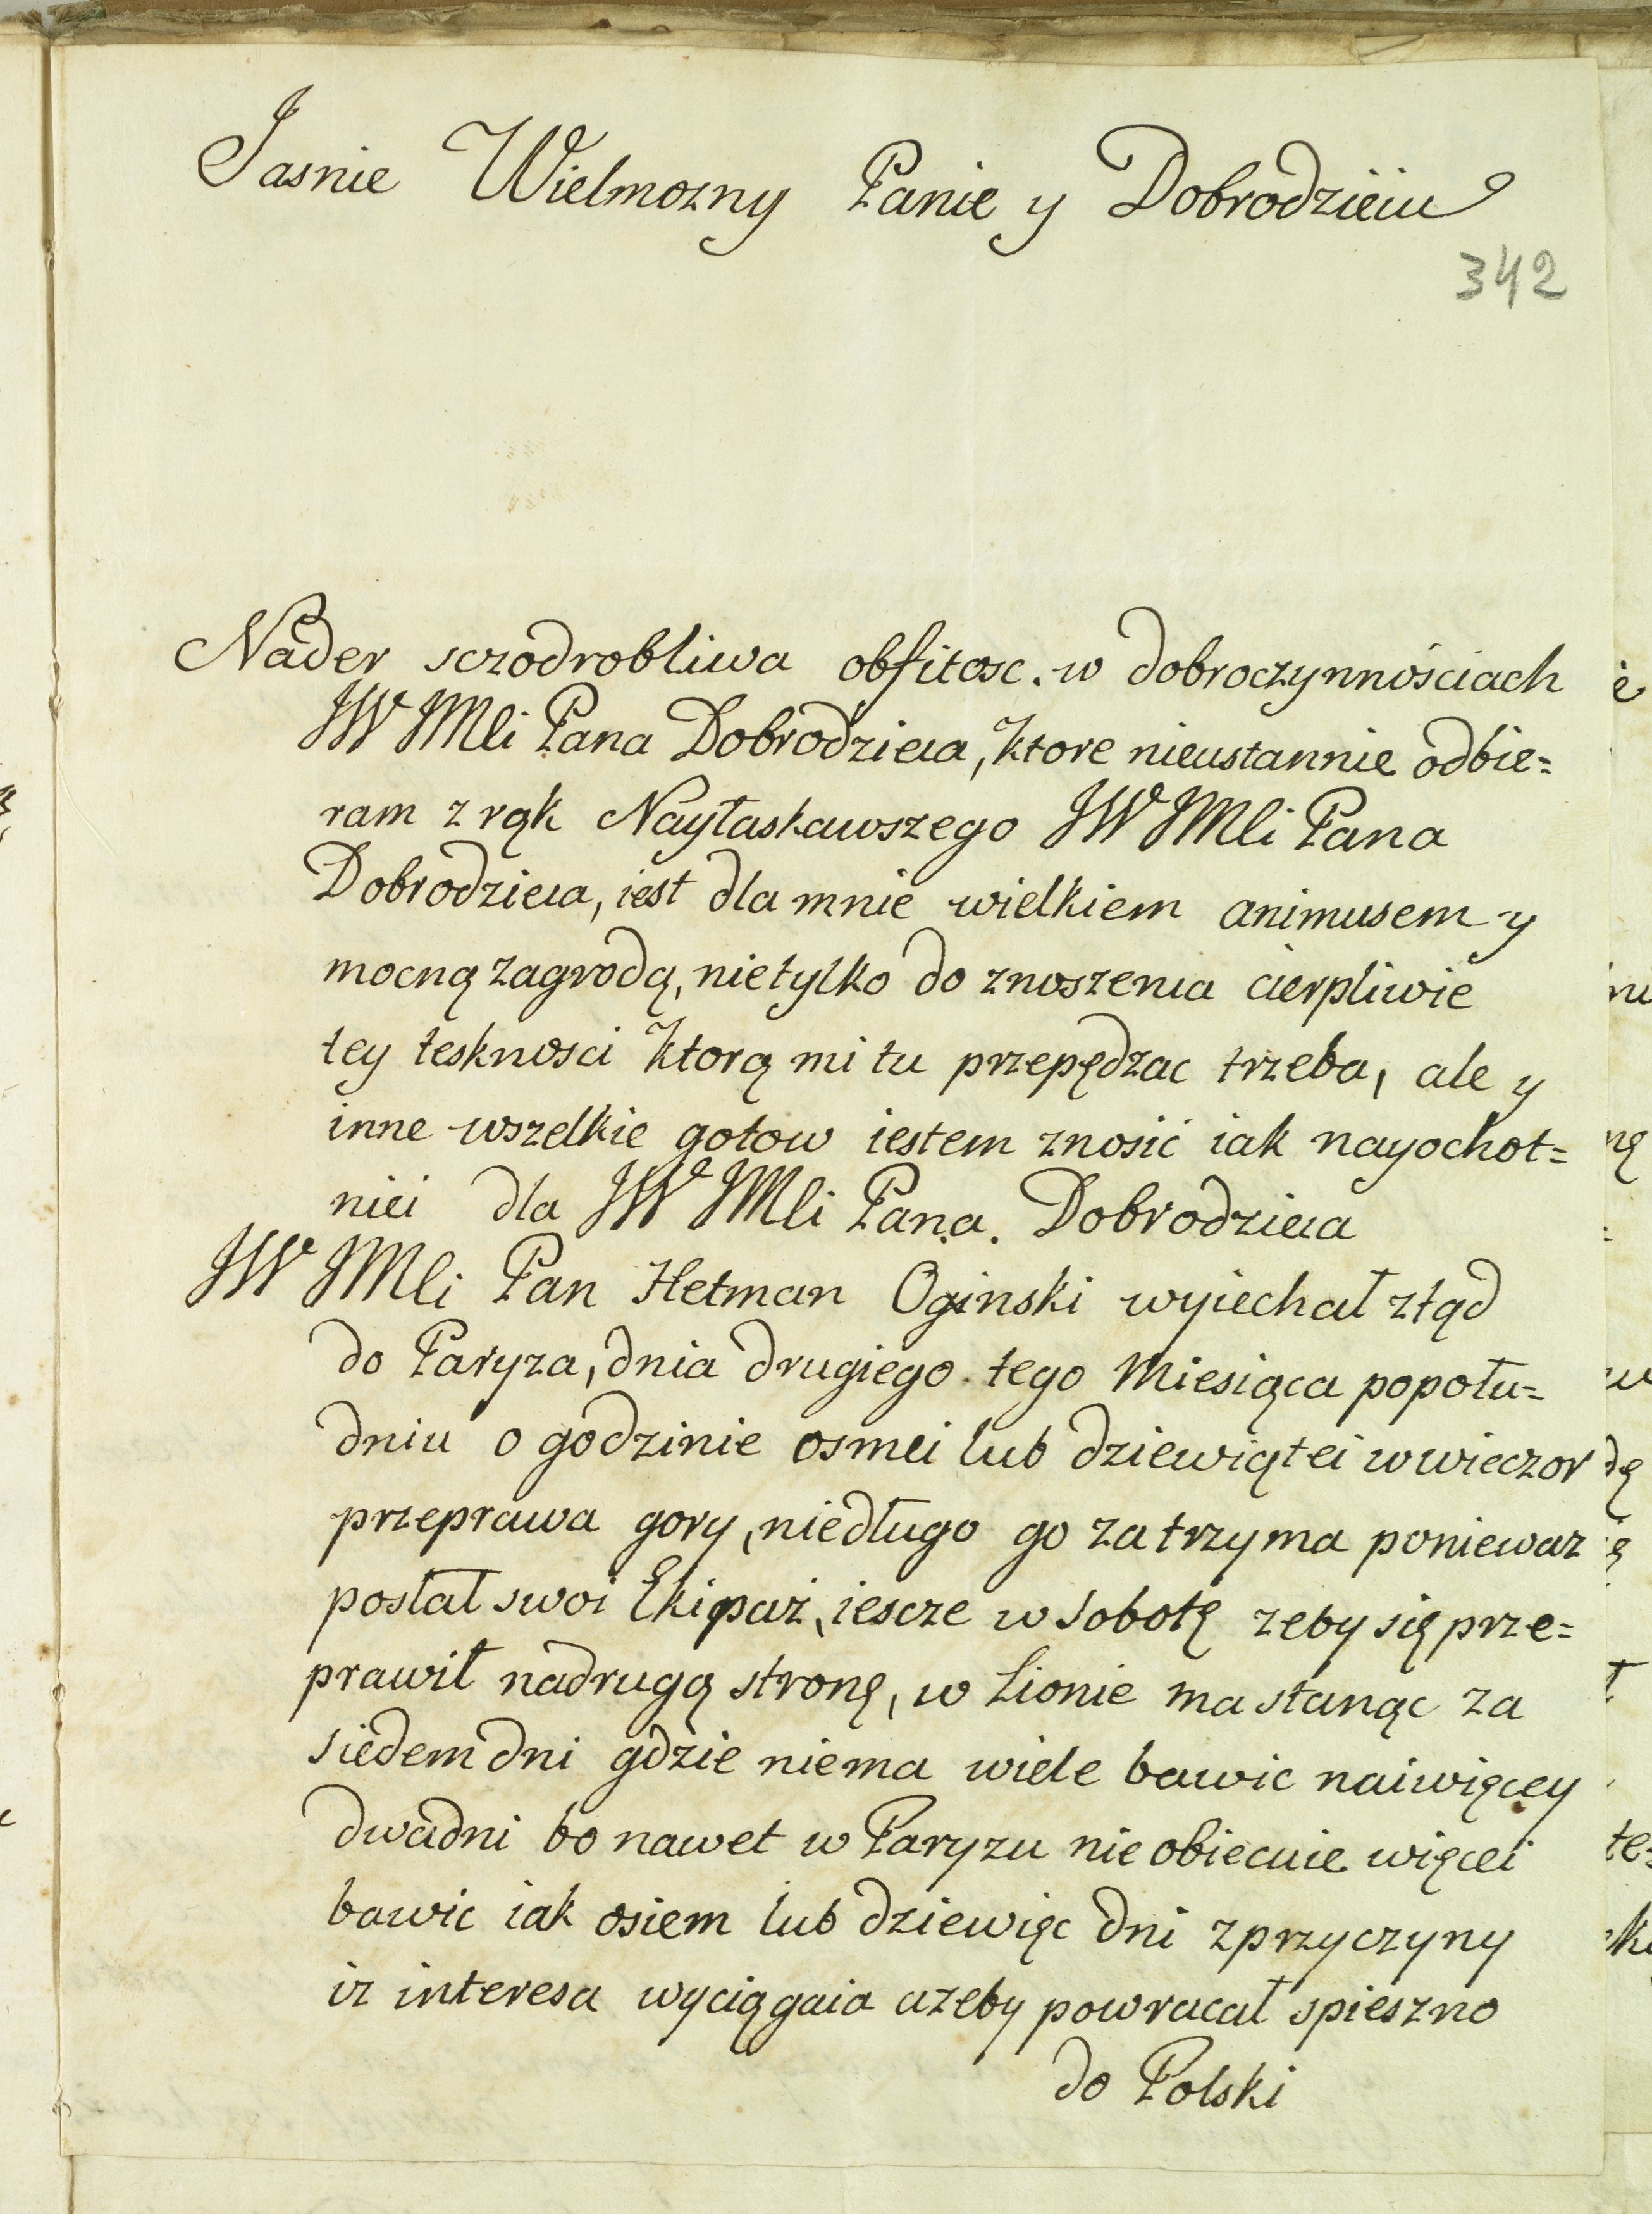 Jasnie Wielmozny Panie y Dobrodzieiu
342
Nader sczodrobliwa obfitosc. w dobroczynnościach
JW JMci Pana Dobrodzieia, ktore nieustannie odbie=
ram z rąk Nayłaskawszego JW JMci Pana
Dobrodzieia, iest dla mnie wielkiem animusem y
mocną zagrodą, nietylko do znoszenia cierpliwie
tey teskności ktorą mi tu przepędzac trzeba, ale y
inne wszelkie gotow iestem znosić iak nayochot=
niei dla JW JMci Pana. Dobrodzieia
JW JMci Pan Hetman Oginski wyiechał ztąd
do Paryza, dnia drugiego tego Miesiąca popołu=
dniu o godzinie osmei lub dziewiątei wwieczor
przeprawa gory, niedługo go zatrzyma poniewaz
posłał swoi Ekipaż, iescze w sobotę zeby się prze=
prawił nadrugą stronę, w Lionie ma stanąc za
siedem dni gdzie niema wiele bawic naiwięcey
dwadni bo nawet w Paryzu nie obiecuie więcei
bawic iak osiem lub dziewięc dni z przyczyny
iz interesa wyciągaia azeby powracał spieszno
do Polski